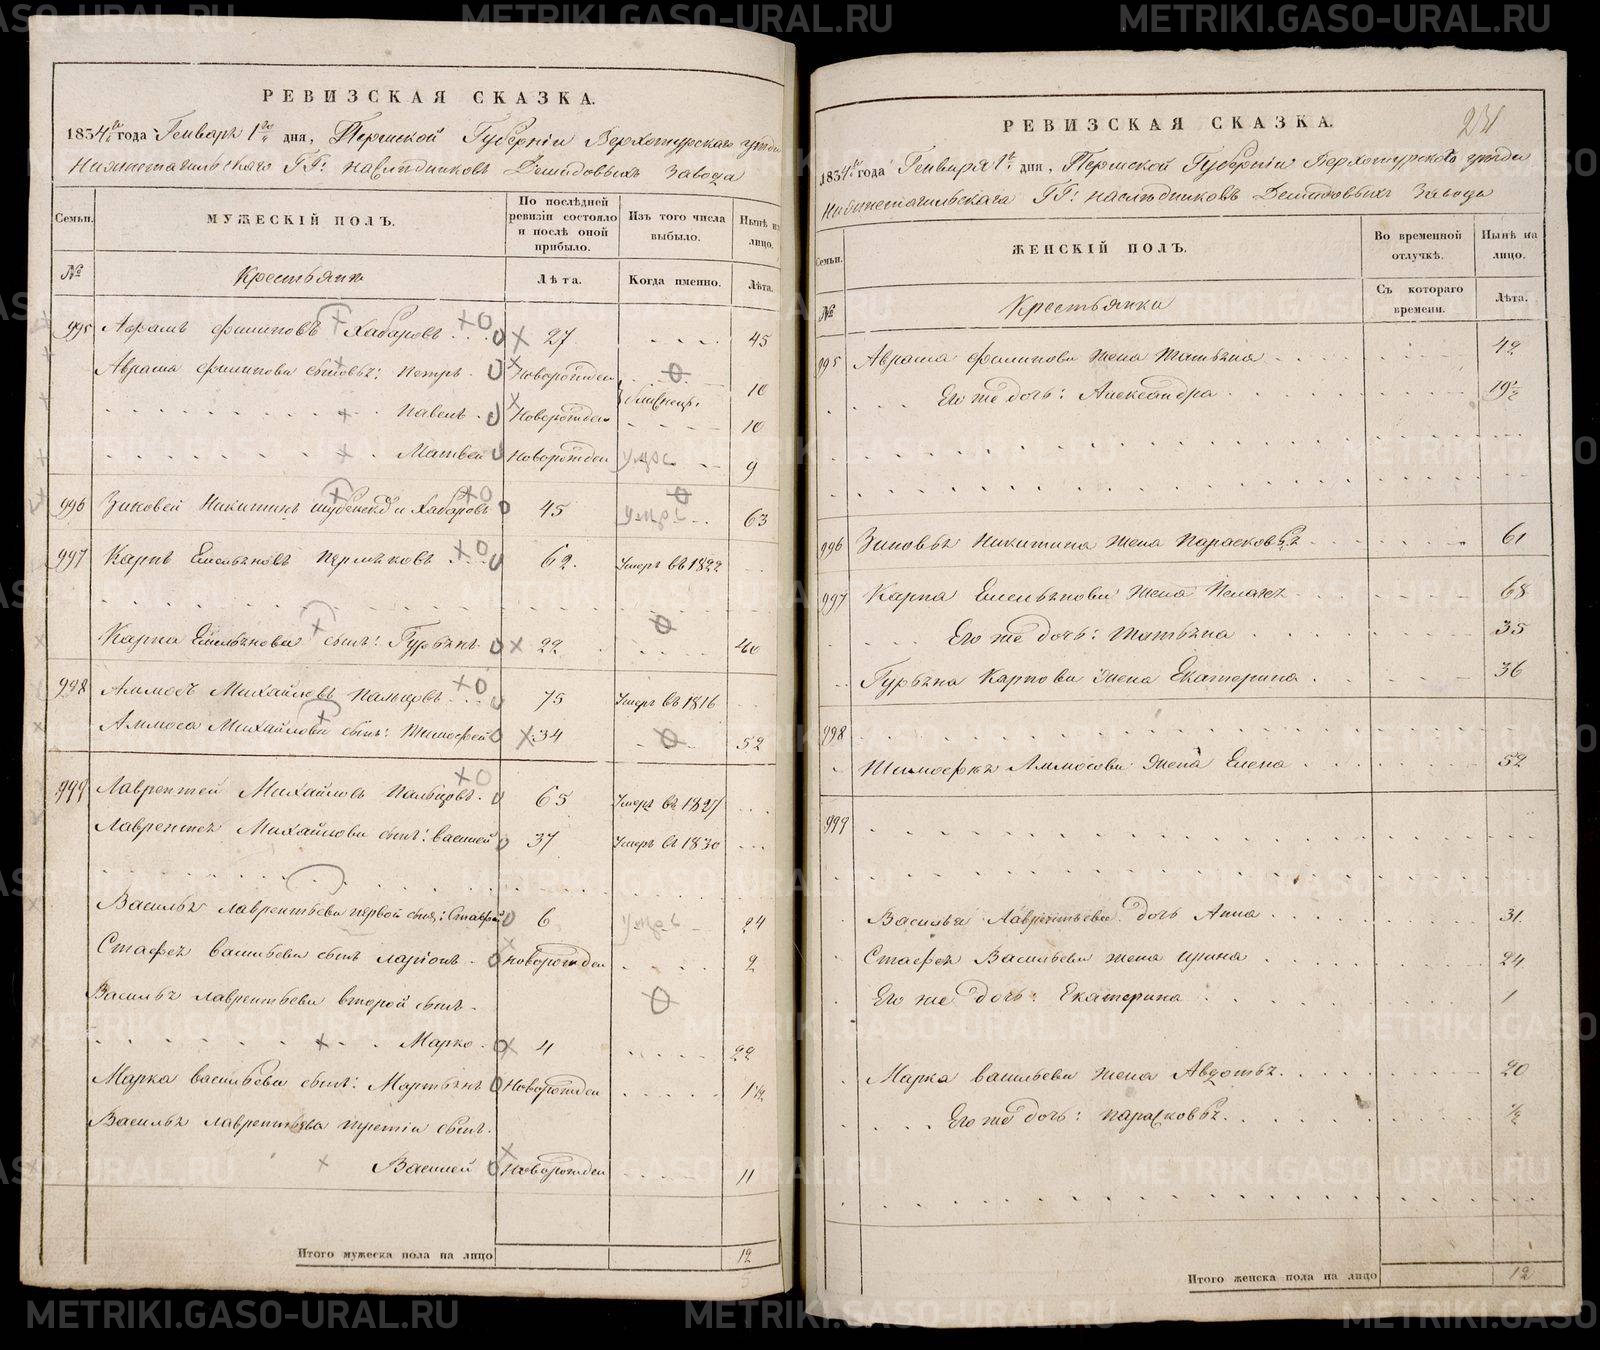 РЕВИЗСКАЯ СКАЗКА.
1834го года Генваря 1го дня, Пермской Губернiи Верхотурскаго уезда
Нижнетагильскаго ГГ: наследниковъ Демидовыхъ Завода
Семьи. МУЖЕСКIЙ ПОЛЪ. По послѣдней ревизiи состояло и послѣ оной прибыло. Изъ того числа выбыло. Нынѣ на лицо.
№ Крестьяни Лѣта. Когда именно. Лѣта.
995 Аврамъ филиповъ Хабаровъ 27 45
Аврама филипова сыновья: Петръ Новорожден 10
близнецы
Павелъ Новорожден 10
Матвей Новорожден умре 9
996 Зиновей Никитинъ и Хабаровъ 45 63
997 Карпъ Емельяновъ Пермяковъ 62 Умеръ въ 1822
Карпа Емельянова сынъ: Гурьянъ 22 40
998 Аммосъ Михайловъ Пальцовъ 75 Умеръ въ 1816
Аммоса Михайлова сынъ: Тимофей 34 52
999 Лаврентей Михайловъ Пальцовъ 65 Умеръ въ 1827
Лаврентья Михайлова сынъ: Василей 37 Умеръ въ 1830
Василья лаврентьева первой сынъ: Стафей 6 24
Стафея васильева сынъ ларiонъ Новорожден 2
Василья лаврентьева второй сынъ
Марко 4 22
Марка васильева сынъ: Мартынъ Новорожден 1½
Василья лаврентьева третiй сынъ
Василей Новорожден 11
Итого мужеска пола на лицо 12
231
РЕВИЗСКАЯ СКАЗКА.
1834го года Генваря 1го дня, Пермской Губернiи Верхотурскаго уезда
Нижнетагильскаго ГГ: наследниковъ Демидовыхъ Завода
Семьи. ЖЕНСКIЙ ПОЛЪ. Во временной отлучкѣ. Нынѣ на лицо.
№ Крестьянки Съ котораго времени. Лѣта.
995 Аврама филипова жена Татьяна 42
Его же дочь: Александра 19½
996 Зиновья Никитина жена Парасковья 61
997 Карпа Емельянова жена Пелагея 68
Его же дочь: Татьяна 35
Гурьяна Карпова жена Екатерина 36
998
Тимофея Аммосова жена Елена 52
999
Василья Лаврентьева дочь Анна 31
Стафея Васильева жена ирина 24
Его же дочь: Екатерина 1
Марка васильева жена Авдотья 20
Его же дочь: парасковья ½
Итого женска пола на лицо 12
METRIKI.GASO-URAL.RU